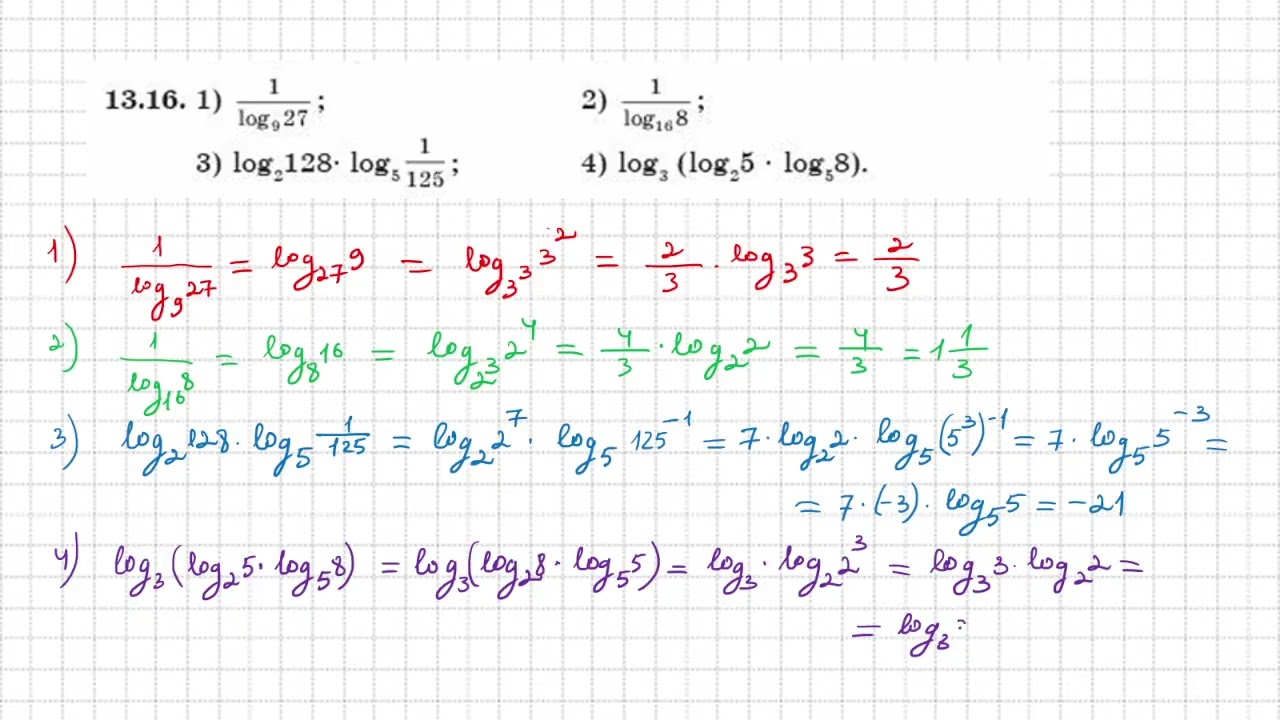 13.16. 1) 1/log₉27; 2) 1/log₁₆8;
3) log₂128· log₅ 1/125; 4) log₃ (log₂5 · log₅8).
1) 1/log₉27 = log₂₇9 = log_{3³} 3² = 2/3 · log₃3 = 2/3
2) 1/log₁₆8 = log₈16 = log_{2³} 2⁴ = 4/3 · log₂2 = 4/3 = 1 1/3
3) log₂128 · log₅ 1/125 = log₂2⁷ · log₅ 125⁻¹ = 7 · log₂2 · log₅(5³)⁻¹ = 7 · log₅5⁻³ =
= 7 · (-3) · log₅5 = -21
4) log₃(log₂5 · log₅8) = log₃(log₂8 · log₅5) = log₃ · log₂2³ = log₃3 · log₂2 =
= log₃